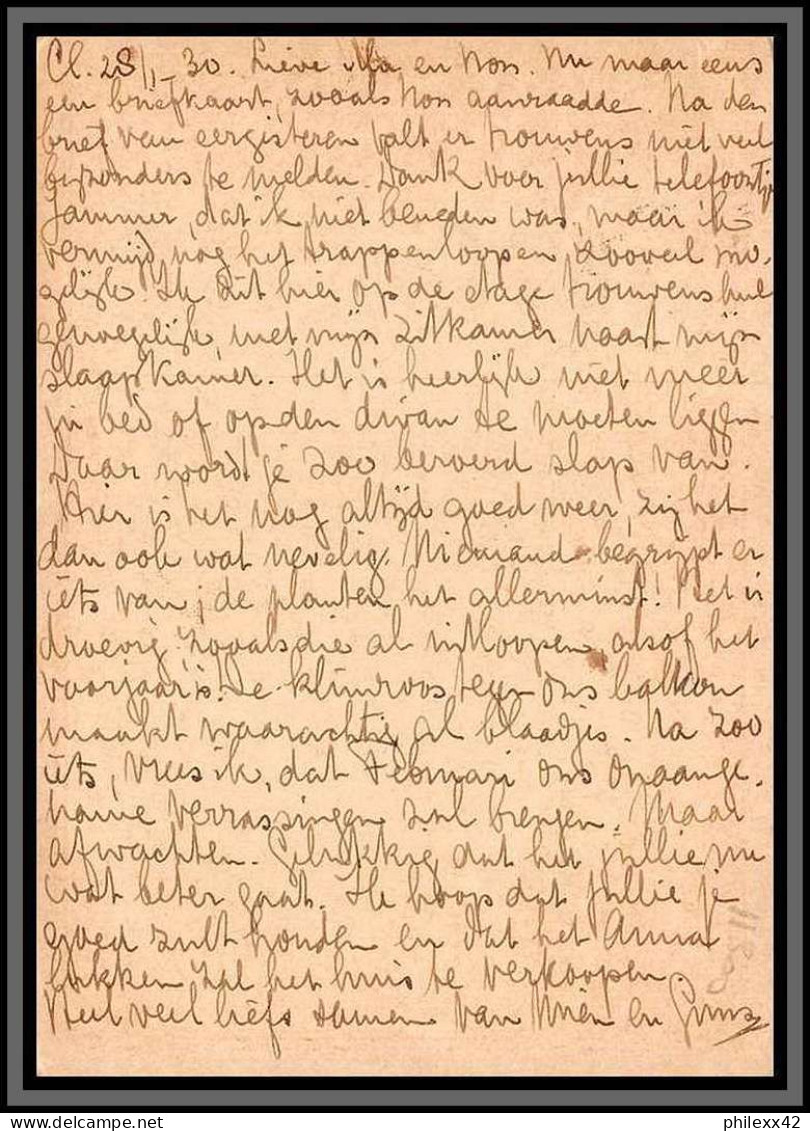 Cl. 28/1 - 30. Lieve Ma en Non. Nu maar eens
een briefkaart, zooals Non aanraadde. Na den
brief van eergisteren valt er trouwens niet veel
bijzonders te melden. Dank voor jullie telefoontje
Jammer, dat ik niet beneden was, maar ik
vermijd nog het trappenloopen zooveel mo-
gelijk. Ik zit hier op de etage trouwens heel
genoegelijk, met mijn zitkamer naast mijn
slaapkamer. Het is heerlijk niet meer
in bed of op den divan te moeten liggen
Daar word je zoo beroerd slap van.
Hier is het nog altijd goed weer, zij het
dan ook wat nevelig. Niemand begrijpt er
iets van, de planten het allerminst! Het is
droevig zooals die al uitloopen, alsof het
voorjaar is! De klimroos tegen ons balkon
maakt waarachtig al blaadjes. Na zoo
iets, vrees ik, dat Februari ons onaange-
name verrassingen zal brengen. Maar
afwachten. Gelukkig dat het jullie nu
wat beter gaat. Ik hoop dat jullie je
goed zult houden en dat het Anna
lukken zal het huis te verkoopen
Heel veel liefs samen van Wien en
philexx42